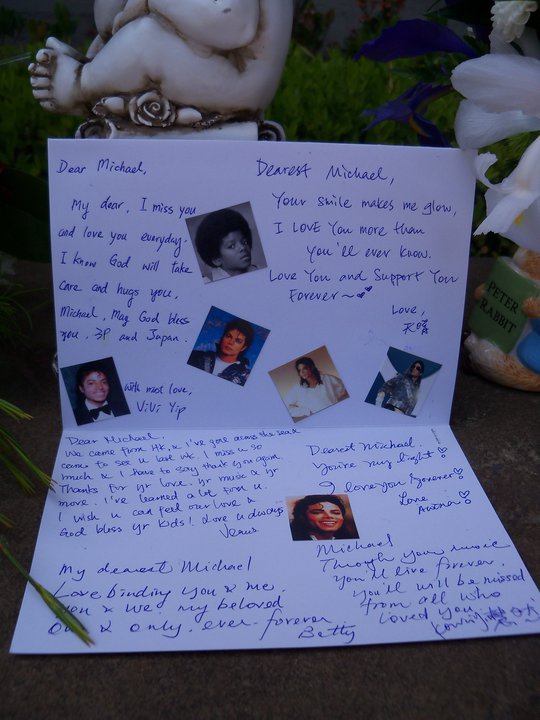 Dear Michael,
My dear, I miss you
and love you everyday.
I know God will take
care and hugs you.
Michael, May God bless
you. 3P and Japan.
With most love,
ViVi Yip
Dearest Michael,
Your smile makes me glow,
I LOVE You more than
You'll ever know.
Love You and Support You
Forever~
Love,
Dear Michael,
We came from HK, & I've gone across the sea &
came to see u last wk. I miss u so
much & I have to say thank you again.
Thanks for yr love. yr music & yr
move. I've learned a lot from u.
I wish u can feel our love &
God bless yr kids! Love u always
Venus
Dearest Michael,
You're my light!
I love you forever!
Love
My dearest Michael
Love binding you & me.
You & we, my beloved
One & only. ever-forever
Betty
Michael
Through your music
You'll live forever.
You'll be missed
from all who
loved you.
PETER
RABBIT